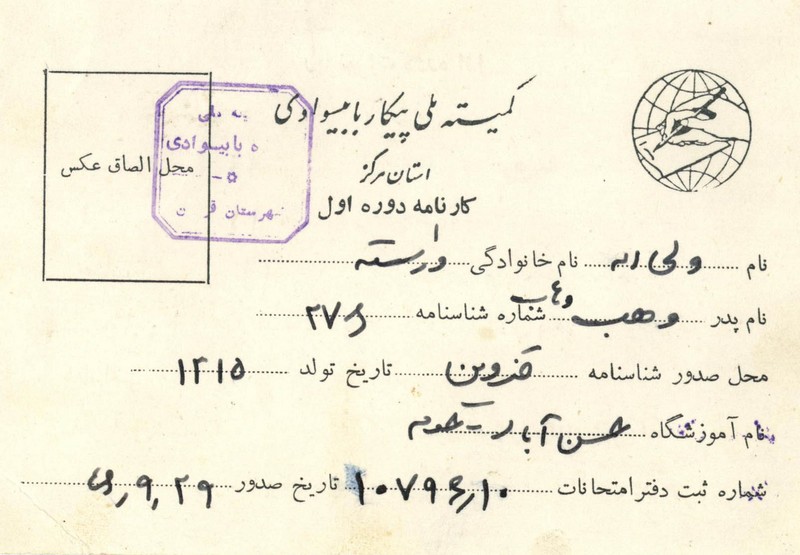 کمیته ملی پیکار با بیسوادی
استان مرکز
کارنامه دوره اول
محل الصاق عکس
یه ملی
ه با بیسوادی
شهرستان ق ن
نام ولی اله نام خانوادگی وارسته
نام پدر وهب شماره شناسنامه ۲۷۶
محل صدور شناسنامه قزوین تاریخ تولد ۱۳۱۵
نام آموزشگاه حسن آباد -
شماره ثبت دفتر امتحانات ۱۰۷۹۶٫۱۰ تاریخ صدور ۲۹٫۹٫۴۶